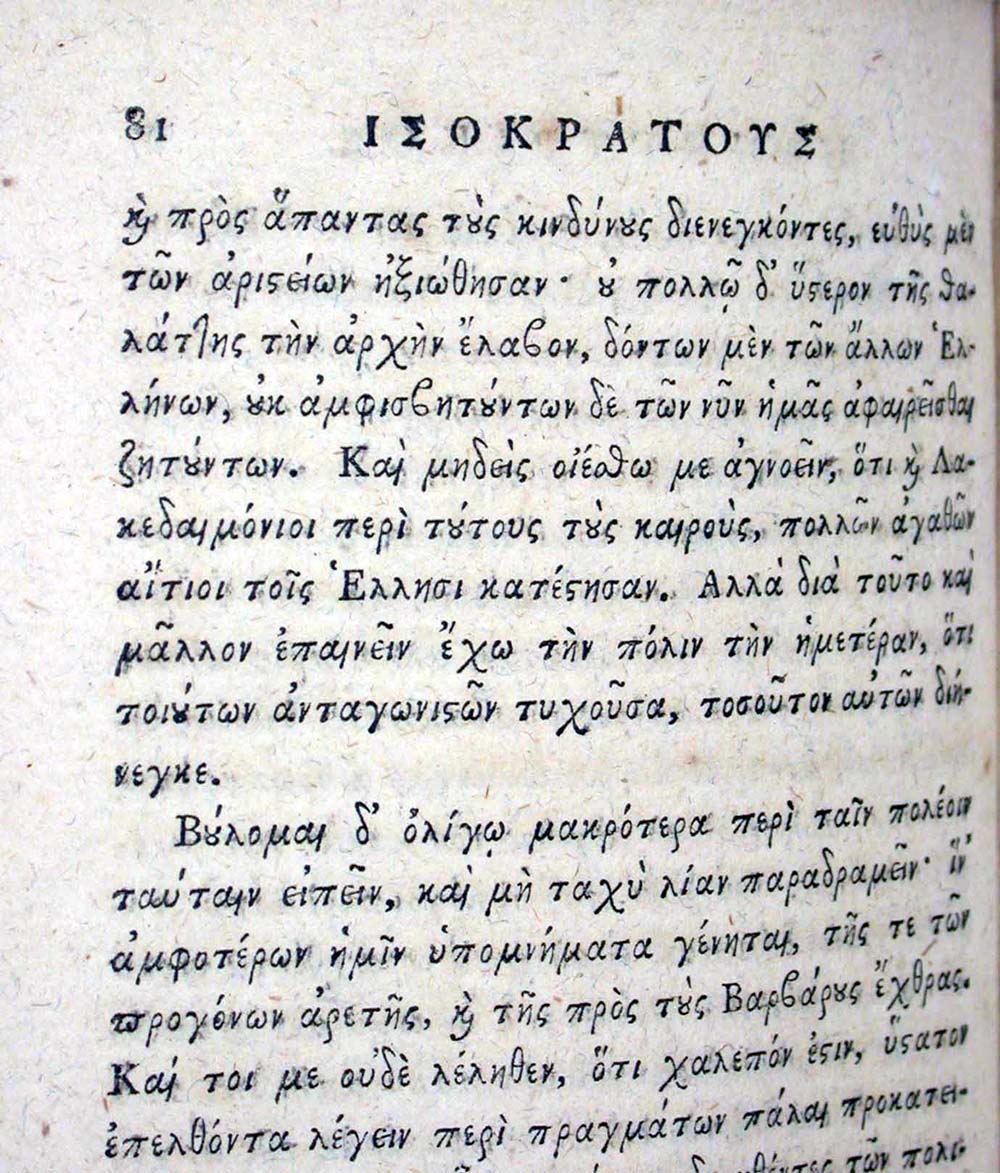 81 ΙΣΟΚΡΑΤΟΥΣ
ϗ πρὸς ἅπαντας τȣ̀ς κινδύνȣς διενεγκόντες, εὐθὺς μὲν
τῶν ἀριϛείων ἠξιώθησαν· ȣ̓ πολλῷ δ' ὕϛερον τῆς θα-
λάττης τὴν ἀρχὴν ἔλαϐον, δόντων μὲν τῶν ἄλλων Ἑλ-
λήνων, ȣ̓κ ἀμφισϐητȣ́ντων δὲ τῶν νῦν ἡμᾶς ἀφαιρεῖσθαι
ζητȣ́ντων. Καὶ μηδεὶς οἰέσθω με ἀγνοεῖν, ὅτι ϗ Λα-
κεδαιμόνιοι περὶ τȣ́τους τȣ̀ς καιροὺς, πολλῶν ἀγαθῶν
αἴτιοι τοῖς Ἕλλησι κατέϛησαν. Αλλὰ διὰ τοῦτο καὶ
μᾶλλον ἐπαινεῖν ἔχω τὴν πόλιν τὴν ἡμετέραν, ὅτι
τοιȣ́των ἀνταγωνιϛῶν τυχοῦσα, τοσοῦτον αὐτῶν διή-
νεγκε.
Βȣ́λομαι δ' ὀλίγῳ μακρότερα περὶ ταῖν πολέοιν
ταύταιν εἰπεῖν, καὶ μὴ ταχὺ λίαν παραδραμεῖν· ἵν'
ἀμφοτέρων ἡμῖν ὑπομνήματα γένηται, τῆς τε τῶν
ϖρογόνων ἀρετῆς, ϗ τῆς πρὸς τȣ̀ς Βαρϐάρȣς ἔχθρας.
Καί τοι με οὐδὲ λέληθεν, ὅτι χαλεπόν ἐϛιν, ὕϛατον
ἐπελθόντα λέγειν περὶ πραγμάτων πάλαι προκατει-
τῶν πολι-